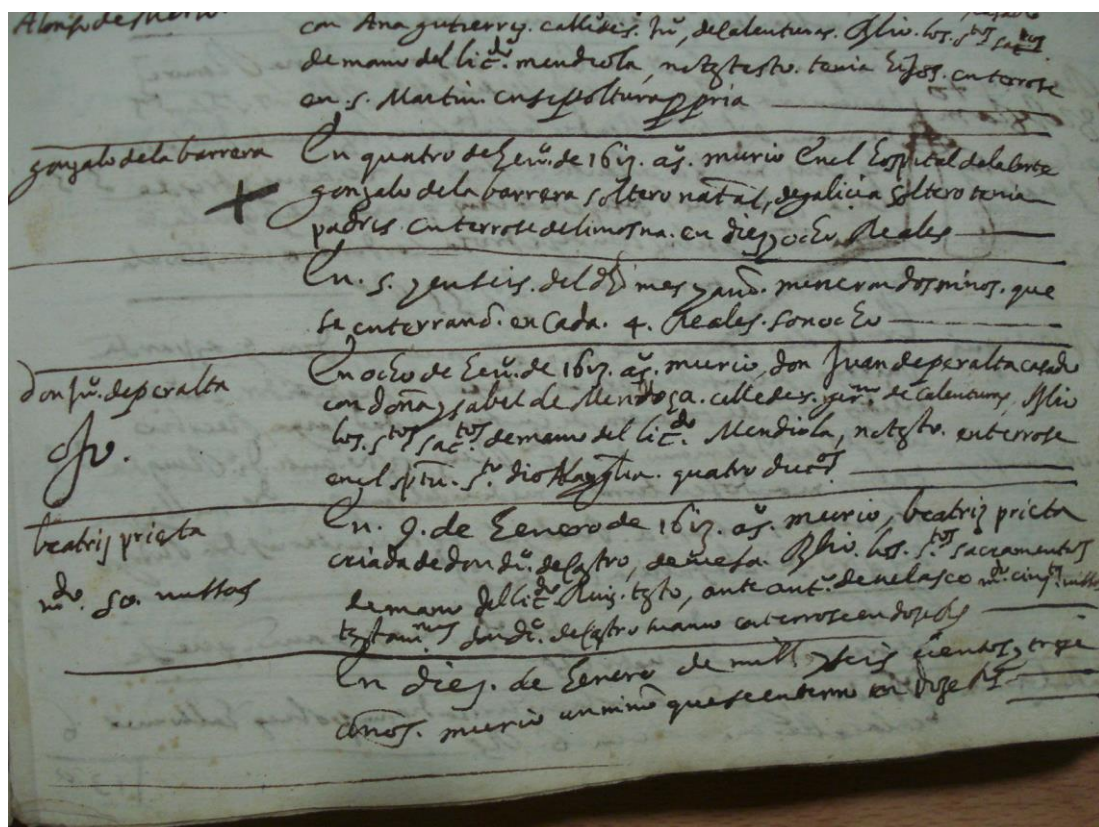 Alonso de
con Ana gutierrez. calle des. Juº, de calenturas. Rsbio. los. s.tos sac.tos
de mano del lic.do mendiola, no tgo testo. tenia hijos. enterrose
en s. Martin. en sepoltura propria
gonzalo de la barrera
En quatro de heno. de 1613. aºs. murio En el hospital de la corte
gonzalo de la barrera soltero natal, de galicia soltero tenia
padres. enterrose de limosna. en diez y ocho Reales
En. 5. y en seis. del dho mes y año. murieron dos niños. que
se enterraron. en cada. 4. Reales. son ocho
don juº. de peralta
En ocho de heno. de 1613. aºs. murio, don Juan de peralta casado
con doña ysabel de Mendoza. calle de s. de calenturas, Rsbio
los. s.tos sac.tos de mano del lic.do Mendiola, no testo. enterrose
en el sptu. s.to dio a la yglia. quatro duc.os
beatriz prieta
mdo. 50. missas
En. 9. de henero de 1613. aºs. murio, beatriz prieta
criada de don de castro, Rsbio. los. s.tos sacramentos
de mano del lic.do Ruiz. testo, ante ant.º de velasco m.do cinq.ta missas
testam.rios don de castro enterrose en doze Rs
En diez. de henero de mill y seis çientos y treze
años. murio un niño que se enterro en doze Rs